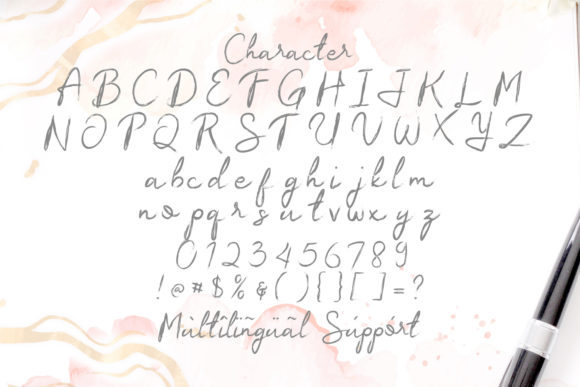 Character
A B C D E F G H I J K L M
N O P Q R S T U V W X Y Z
a b c d e f g h i j k l m
n o p q r s u t v w x y z
0 1 2 3 4 5 6 7 8 9
! @ # $ % & ( ) { } [ ] = ?
Mùltîlïñgüãl Súppórt